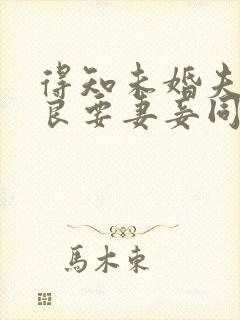 得知未婚夫
良要妻妾同
馬木東